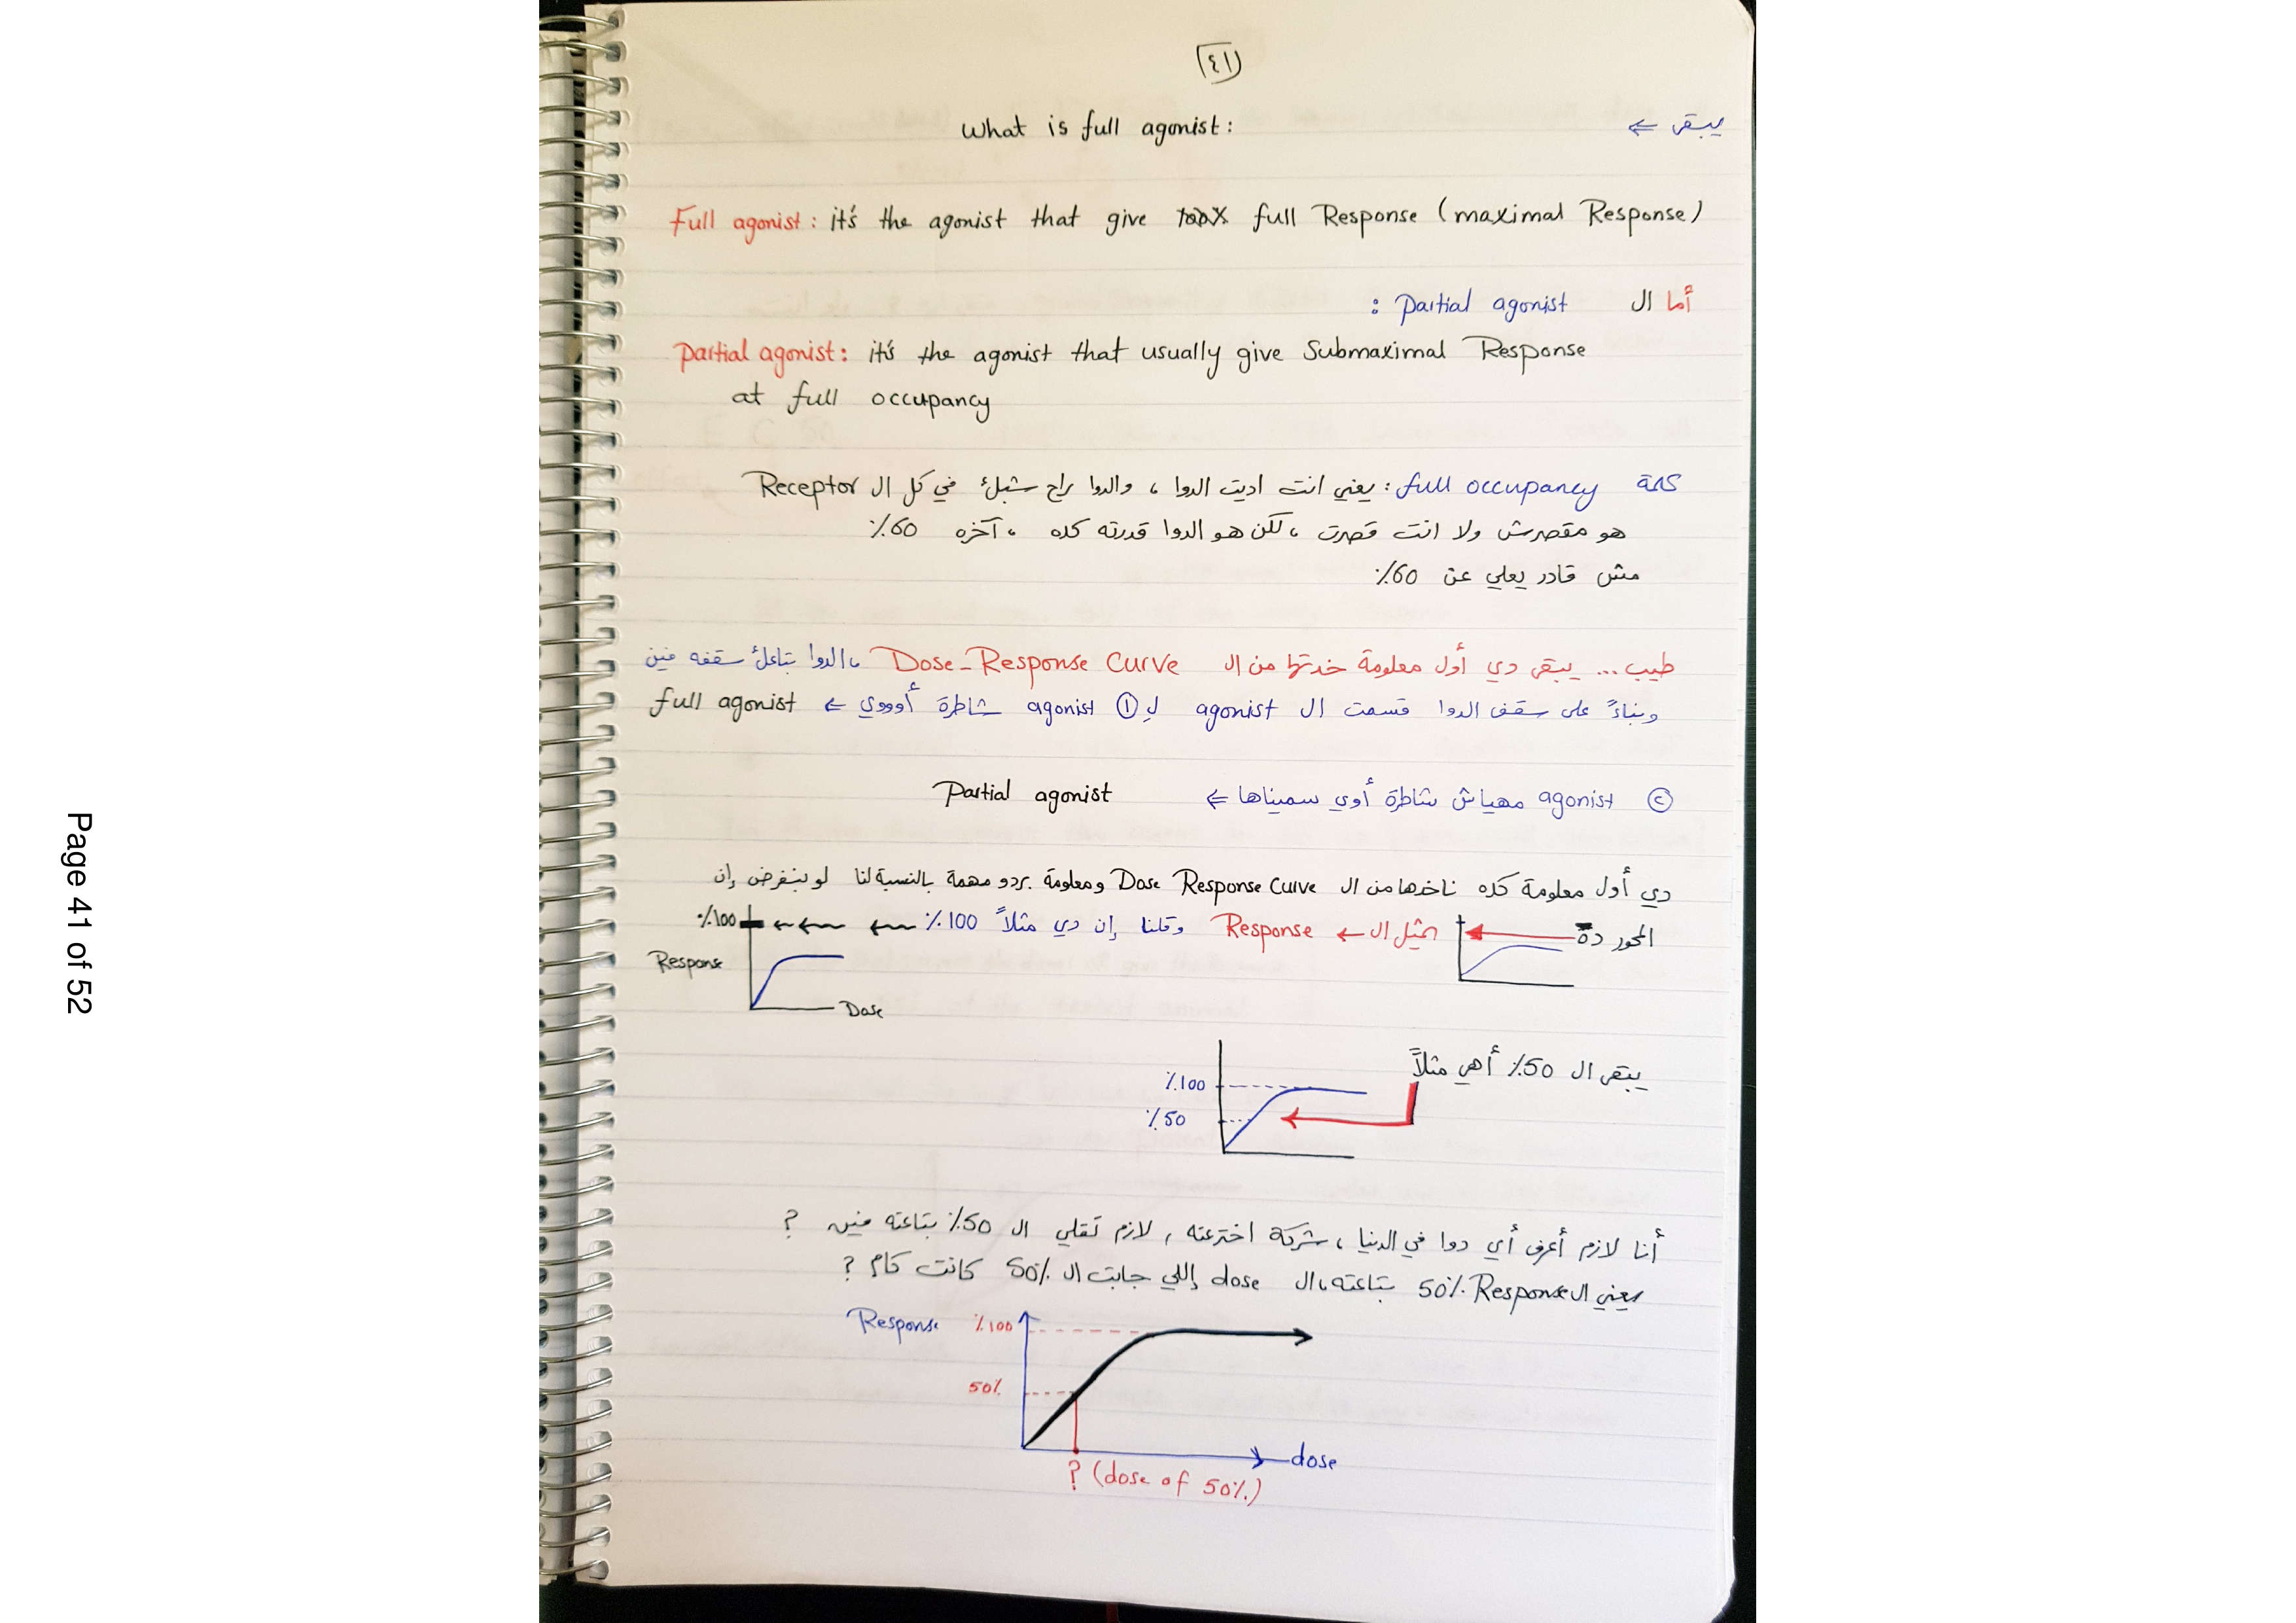 Page 41 of 52
٤١
يبقى ⇐ What is full agonist:
Full agonist: it's the agonist that give full Response (maximal Response)
أما ال Partial agonist :
Partial agonist: it's the agonist that usually give Submaximal Response
at full occupancy
كلمة full occupancy: يعني انت اديت الدوا، والدوا راح شبك في كل ال Receptor
هو مقصرش ولا انت قصرت، لكن هو الدوا قدرته كده، آخره 60٪
مش قادر يعلي عن 60٪
طيب... يبقى دي أول معلومة خدتها من ال Dose-Response Curve، الدوا بتاعك سقفه فين
وبناءً على سقف الدوا قسمت ال agonist لـ ① agonist شاطرة أوووي ⇐ full agonist
② agonist مهياش شاطرة أوي سميناها ⇐ Partial agonist
دي أول معلومة كده ناخدها من ال Dose Response Curve ومعلومة بردو مهمة بالنسبة لنا لو بنفرض إن
المحور ده يمثل ال ← Response وقلنا إن دي مثلاً 100٪ ٪100
Response
Dose
يبقى ال 50٪ أهي مثلاً
٪100
٪50
أنا لازم أعرف أي دوا في الدنيا، شركة اخترعته، لازم تقلي ال 50٪ بتاعته فين ?
يعني ال Response 50٪ بتاعته، ال dose إللي جابت ال 50٪ كانت كام ?
Response ٪100
50%
dose
? (dose of 50%)